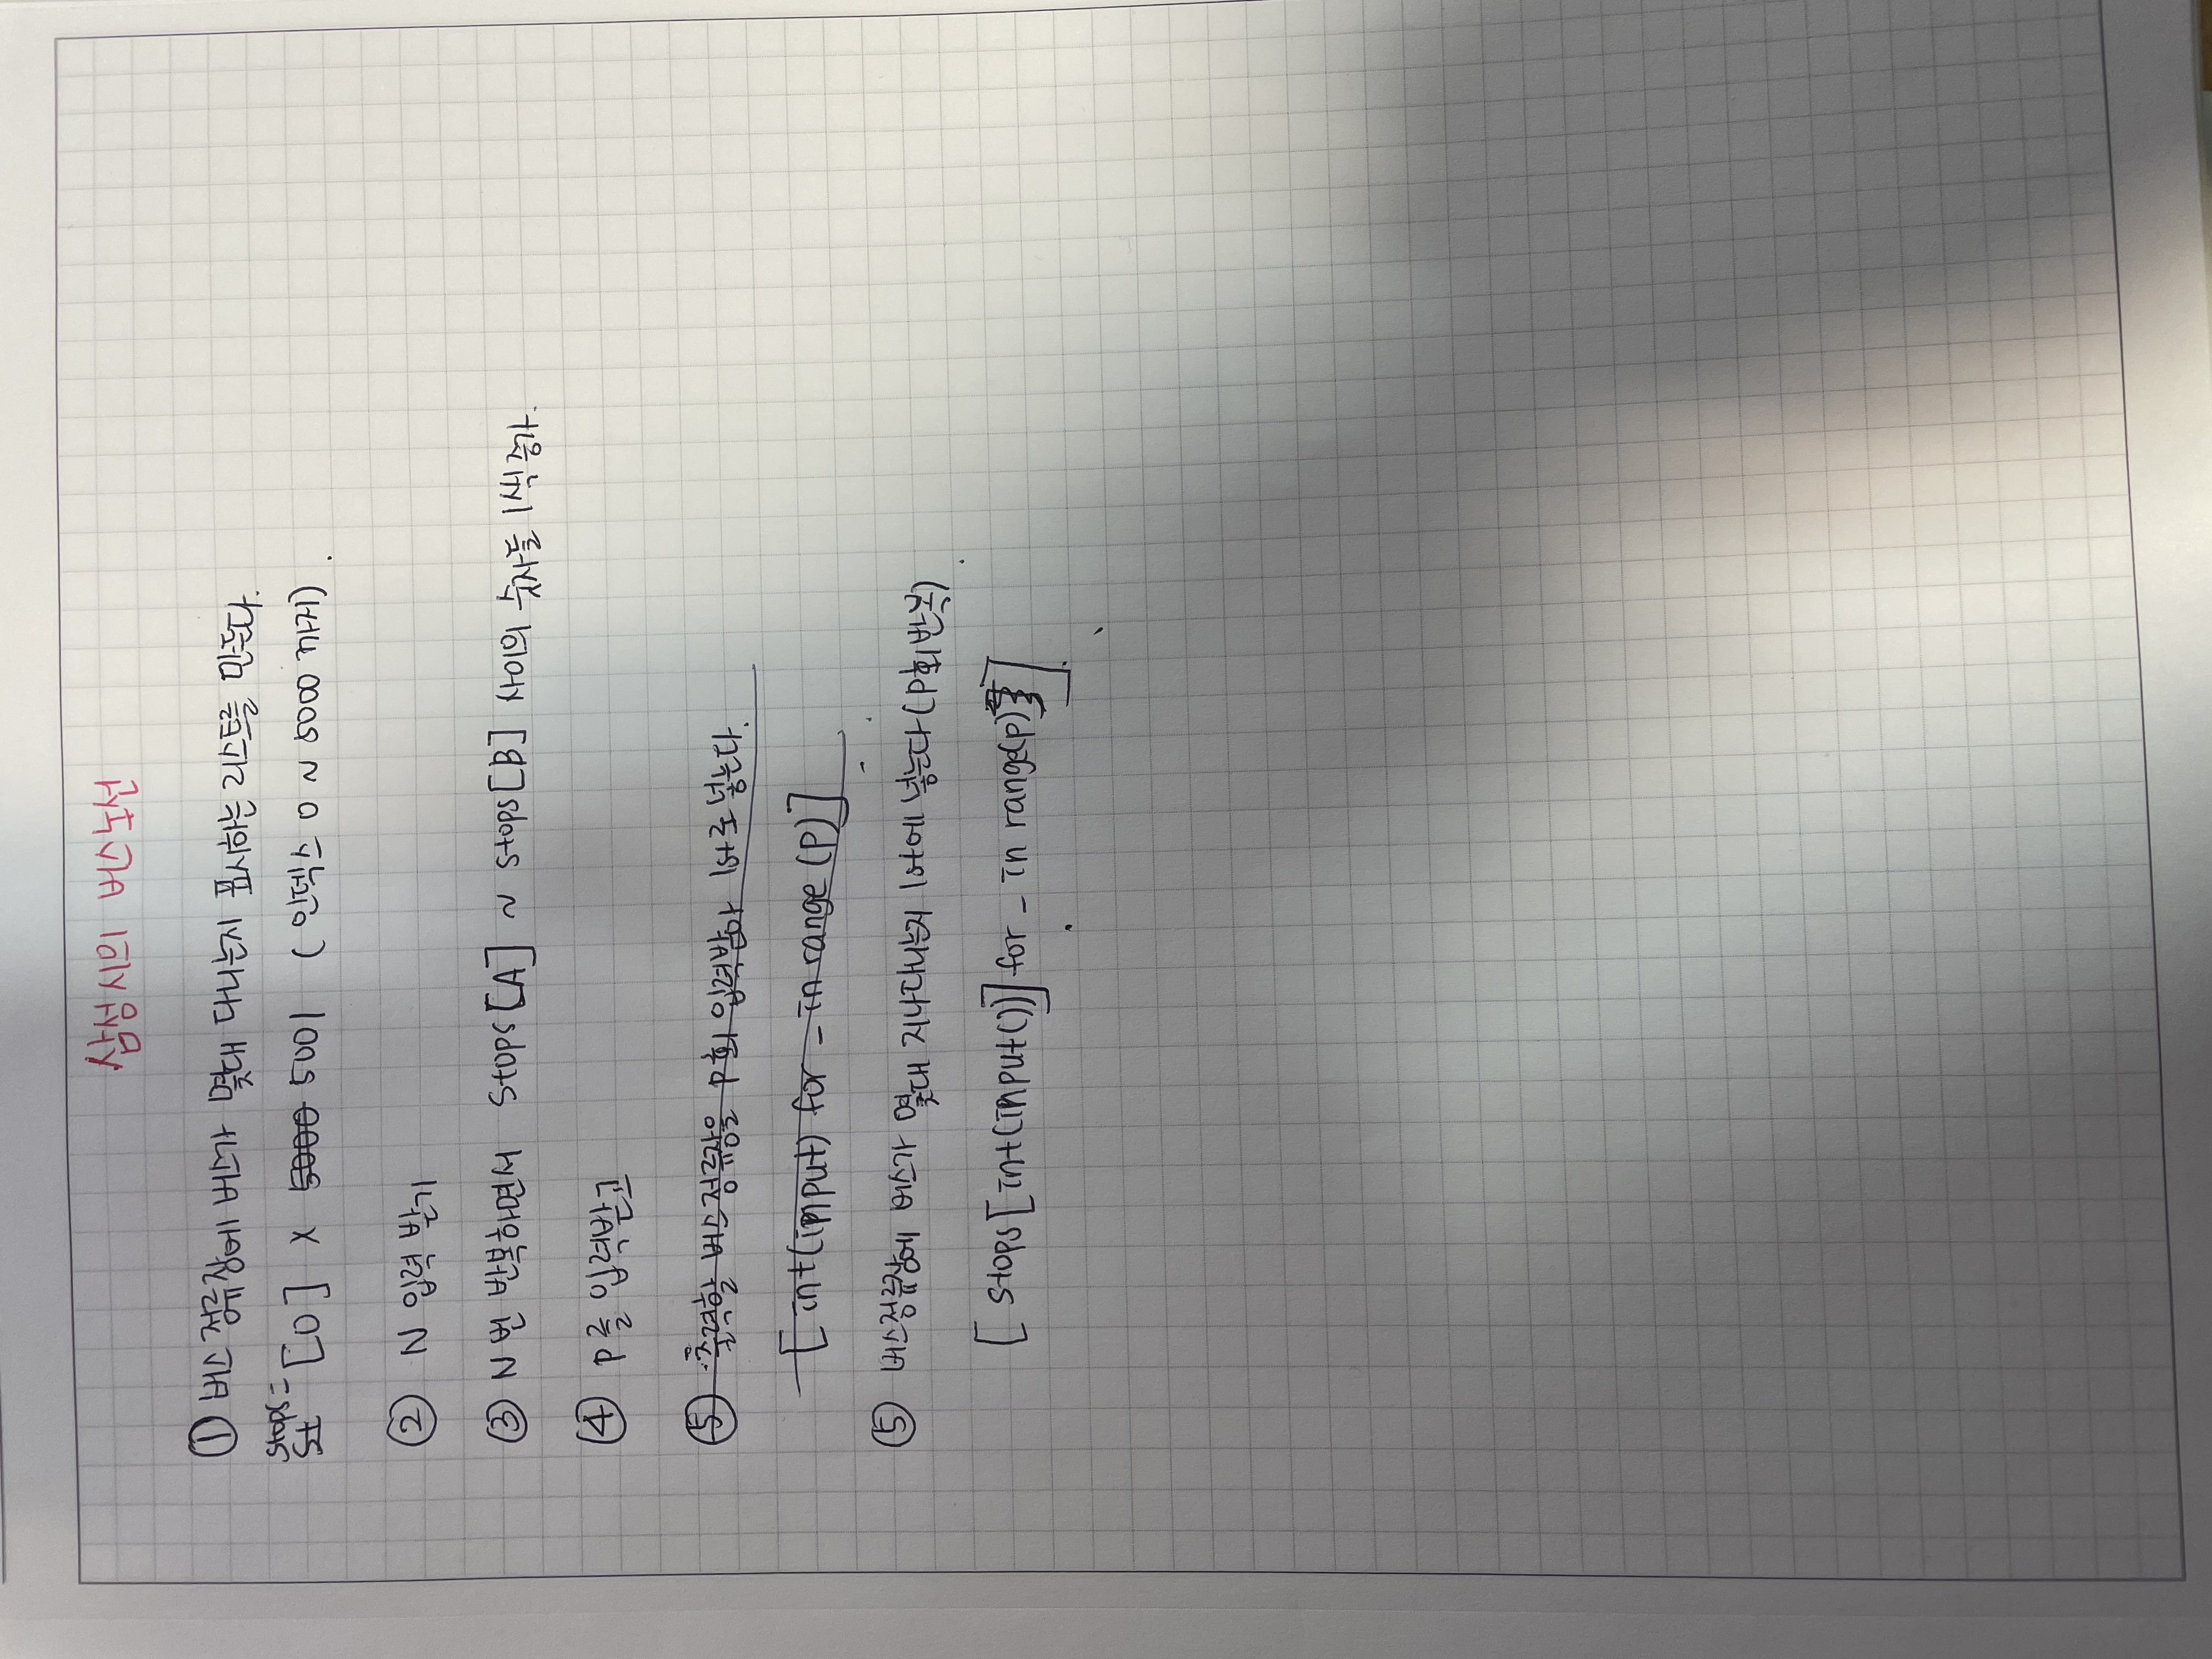 삼성시의 버스노선
① 버스 정류장에 버스가 몇대 다니는지 표시하는 리스트를 만든다.
stops =
st [0] × 5000 5001 (인덱스 0 ~ 5000 까지).
② N 입력 받기
③ N번 반복하면서 stops[A] ~ stops[B] 사이의 숫자들 1씩 증가.
④ P를 입력받고
⑤ 출력할 버스정류장을 P회 입력받아 lst로 넣는다.
[int(input) for _ in range(P)]
⑤ 버스정류장에 버스가 몇대 지나다니는지 lst에 넣는다 (P회 반복)
[stops[int(input())] for _ in range(P)]